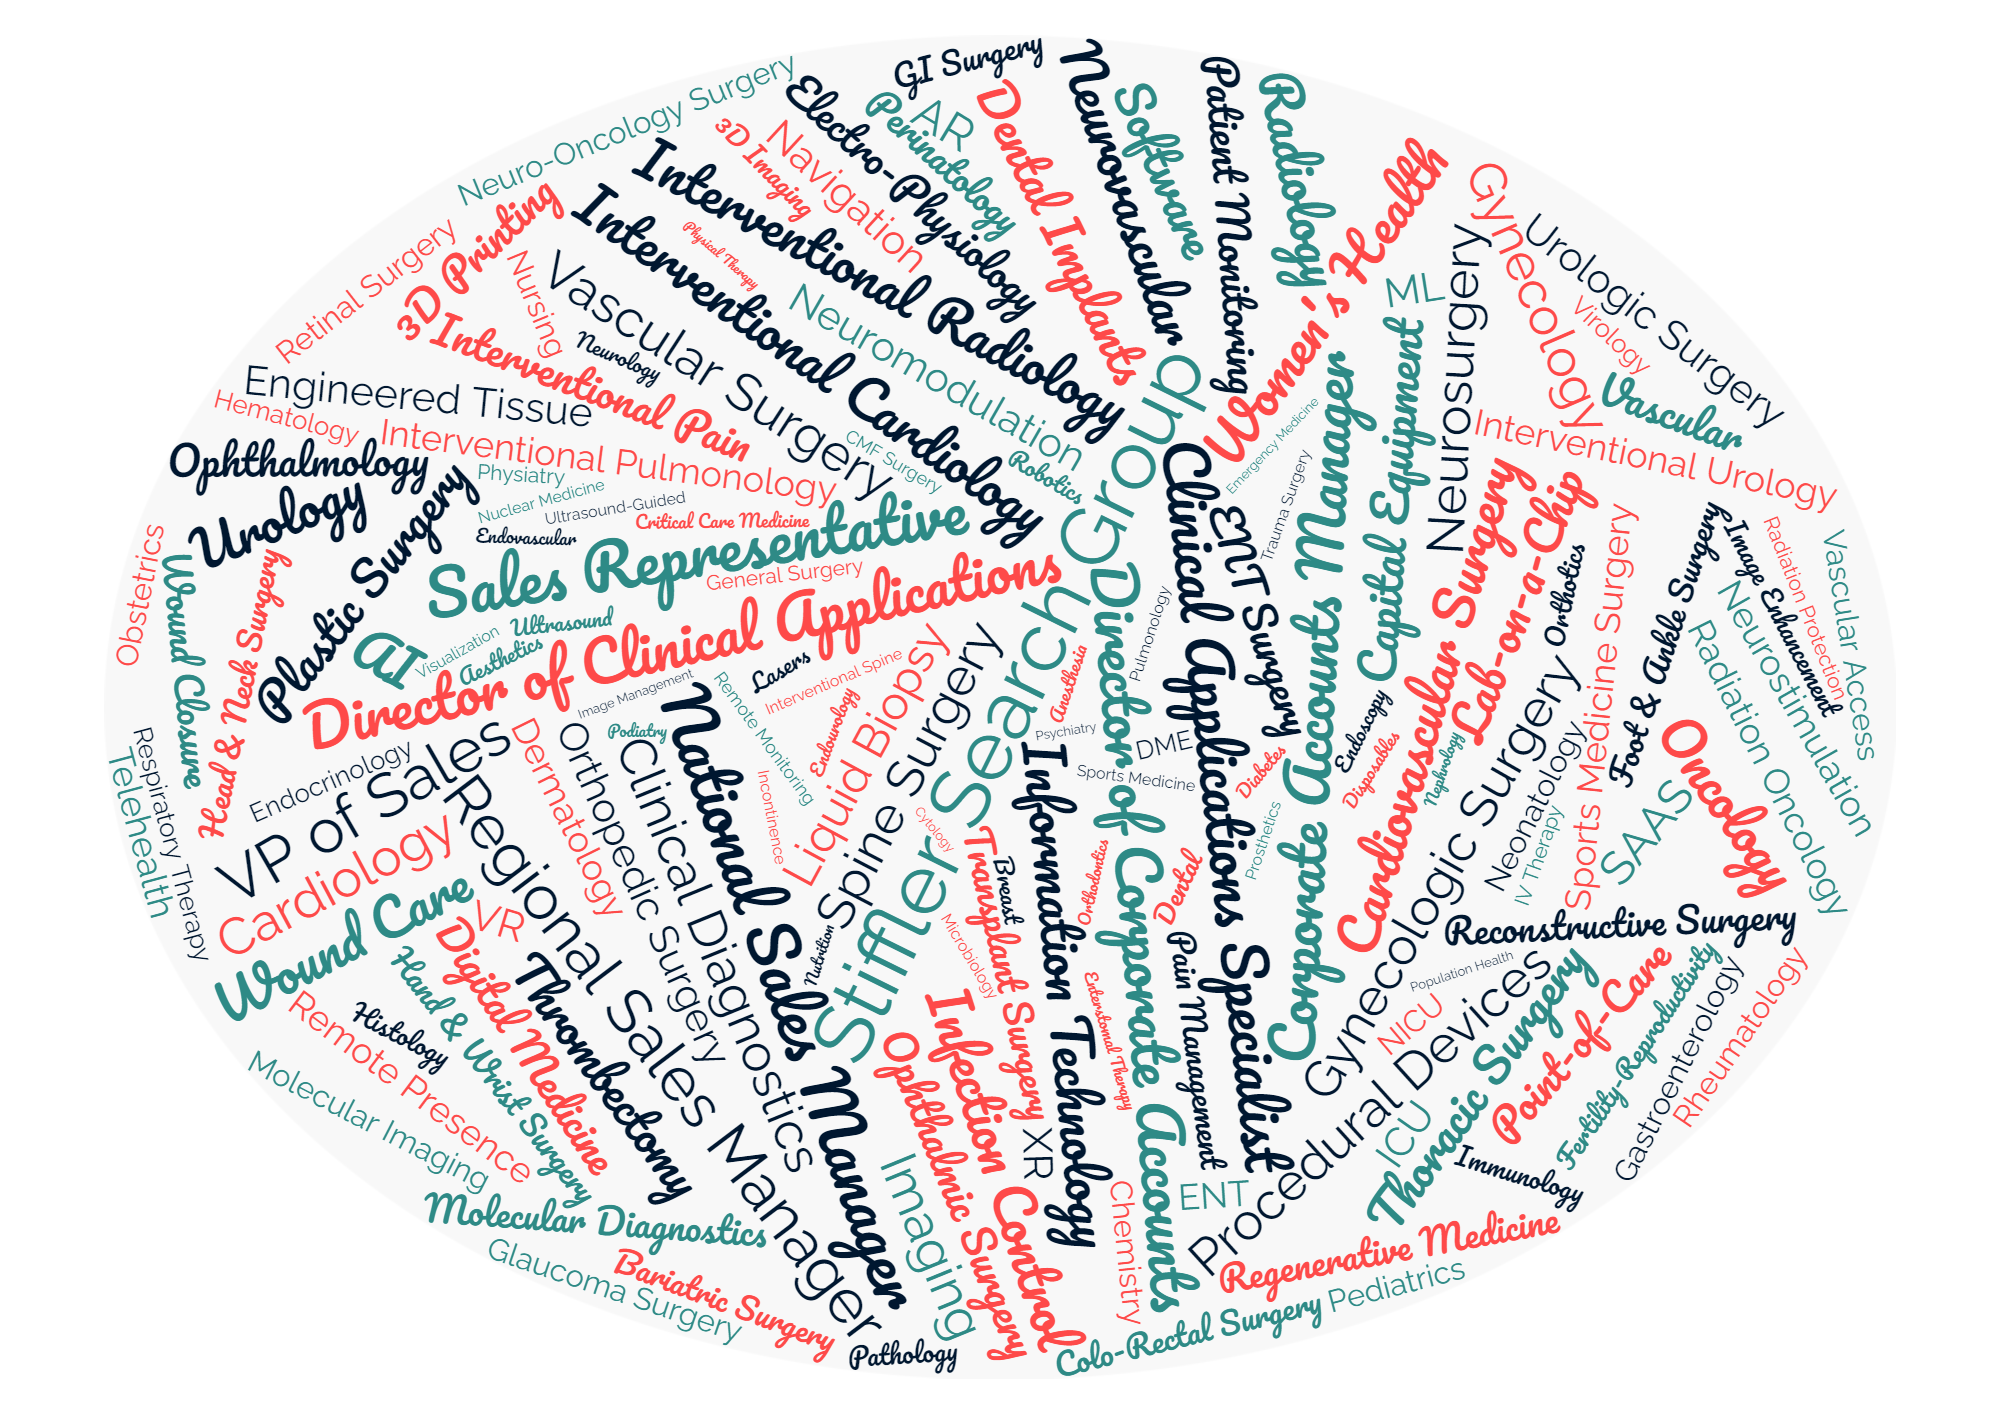 GI Surgery
Neuro-Oncology Surgery
Electro-Physiology
AR
Perinatology
Dental Implants
Neurovascular
Software
Patient Monitoring
Radiology
Women's Health
Gynecology
Urologic Surgery
3D Imaging
Navigation
Interventional Radiology
Interventional Cardiology
3D Printing
Retinal Surgery
Physical Therapy
Nursing
Vascular Surgery
Neuromodulation
Neurology
Interventional Pain
Engineered Tissue
Hematology
Interventional Pulmonology
CMF Surgery
Robotics
Stiffler Search Group
Emergency Medicine
ML
Neurosurgery
Virology
Vascular
Interventional Urology
Ophthalmology
Urology
Plastic Surgery
Physiatry
Nuclear Medicine
Ultrasound-Guided
Endovascular
Critical Care Medicine
Sales Representative
General Surgery
Director of Clinical Applications
Clinical Applications Specialist
ENT Surgery
Trauma Surgery
Corporate Accounts Manager
Capital Equipment
Cardiovascular Surgery
Lab-on-a-Chip
Orthotics
Sports Medicine Surgery
Foot & Ankle Surgery
Image Enhancement
Radiation Protection
Vascular Access
Neurostimulation
Radiation Oncology
Obstetrics
Wound Closure
Head & Neck Surgery
AI
Visualization
Ultrasound
Aesthetics
Image Management
Podiatry
Lasers
Interventional Spine
Remote Monitoring
Endourology
Liquid Biopsy
Spine Surgery
Anesthesia
Pulmonology
Director of Corporate Accounts
Psychiatry
DME
Sports Medicine
Diabetes
Endoscopy
Disposables
Nephrology
Gynecologic Surgery
Neonatology
IV Therapy
SAAS
Oncology
Respiratory Therapy
Telehealth
Endocrinology
VP of Sales
Cardiology
Wound Care
Regional Sales Manager
Dermatology
Orthopedic Surgery
Clinical Diagnostics
National Sales Manager
Incontinence
Cytology
Nutrition
Microbiology
Transplant Surgery
Breast
Information Technology
Orthodontics
Dental
Prosthetics
Pain Management
Enterstomal Therapy
VR
Digital Medicine
Thrombectomy
Hand & Wrist Surgery
Histology
Remote Presence
Molecular Imaging
Molecular Diagnostics
Glaucoma Surgery
Bariatric Surgery
Pathology
Imaging
Infection Control
Ophthalmic Surgery
XR
Chemistry
ENT
Procedural Devices
Reconstructive Surgery
Population Health
NICU
ICU
Thoracic Surgery
Point-of-Care
Fertility-Reproductivity
Gastroenterology
Rheumatology
Immunology
Regenerative Medicine
Pediatrics
Colo-Rectal Surgery